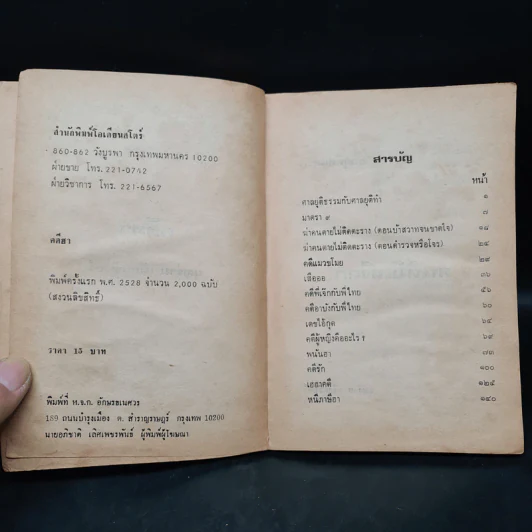 สำนักพิมพ์โอเดียนสโตร์
860-862 วังบูรพา กรุงเทพมหานคร 10200
ฝ่ายขาย โทร. 221-0742
ฝ่ายวิชาการ โทร. 221-6567
คดีฮา
พิมพ์ครั้งแรก พ.ศ. 2528 จำนวน 2,000 ฉบับ
(สงวนลิขสิทธิ์)
ราคา 15 บาท
พิมพ์ที่ ห.จ.ก. อักษรอเนศวร
189 ถนนบำรุงเมือง ต. สำราญราษฎร์ กรุงเทพ 10200
นายอภิชาติ เลิศเพชรพันธ์ ผู้พิมพ์ผู้โฆษณา
สารบัญ
หน้า
ศาลยุติธรรมกับศาลยุติทำ ๑
มาตรา ๙ ๗
ฆ่าคนตายไม่ติดตะราง (ตอนบ้าสวาทจนขาดใจ) ๑๘
ฆ่าคนตายไม่ติดตะราง (ตอนตำรวจหรือโจร) ๒๔
คดีแมวขโมย ๒๙
เสือออ ๓๖
คดีพี่เจ๊กกับพี่ไทย ๕๖
คดีอาบังกับพี่ไทย ๖๐
เดชไอ้กุด ๖๔
คดีผู้หญิงคืออะไร ? ๖๙
พนันฮา ๗๓
คดีรัก ๑๐๐
เฮฮาคดี ๑๒๔
หนีภาษีฮา ๑๔๐